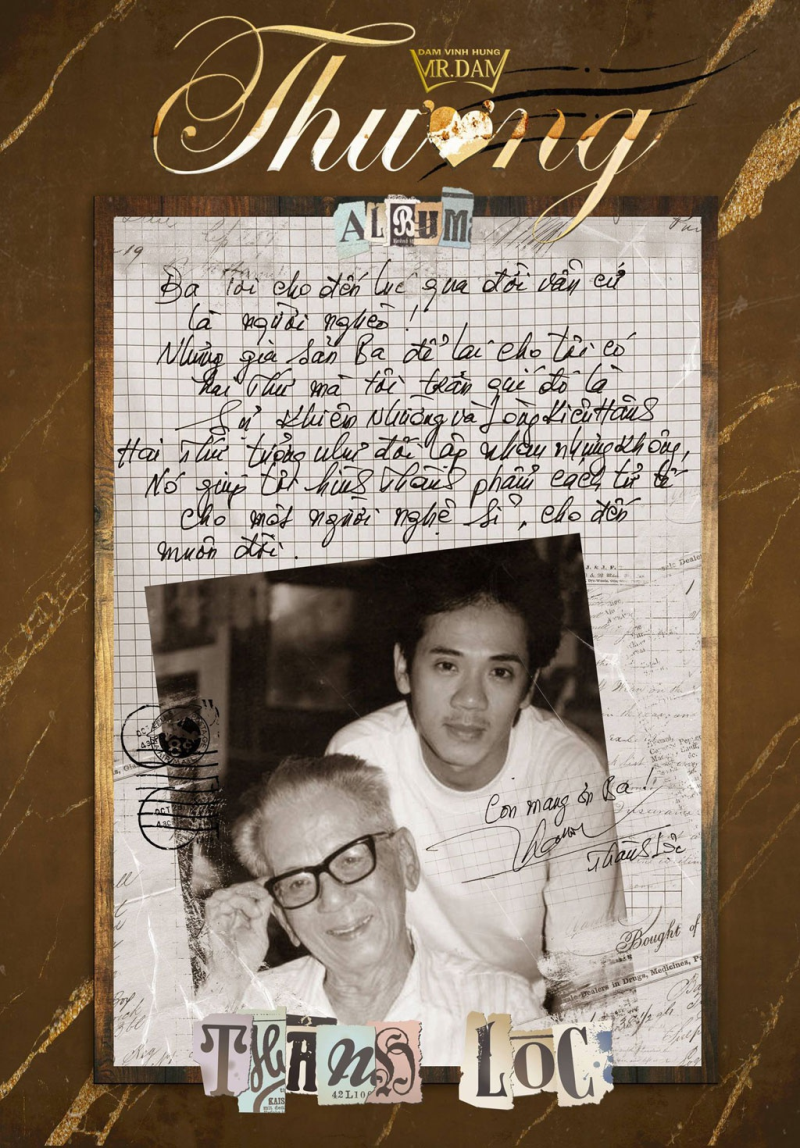 DAM VINH HUNG
MR.DAM
Thương
ALBUM
Ba tôi cho đến lúc qua đời vẫn cứ
là người nghèo !
Nhưng gia sản Ba để lại cho tôi có
hai thứ mà tôi trân quí đó là
Sự Khiêm Nhường và Lòng Kiêu Hãnh
Hai thứ tưởng như đối lập nhau nhưng không,
Nó giúp tôi hình thành phẩm cách tử tế
cho một người nghệ sĩ, cho đến
muôn đời .
Con mang ơn Ba !
Thành Lộc
Bought of
Dealers in Drugs, Medicines,
THÀNH LỘC
42L10